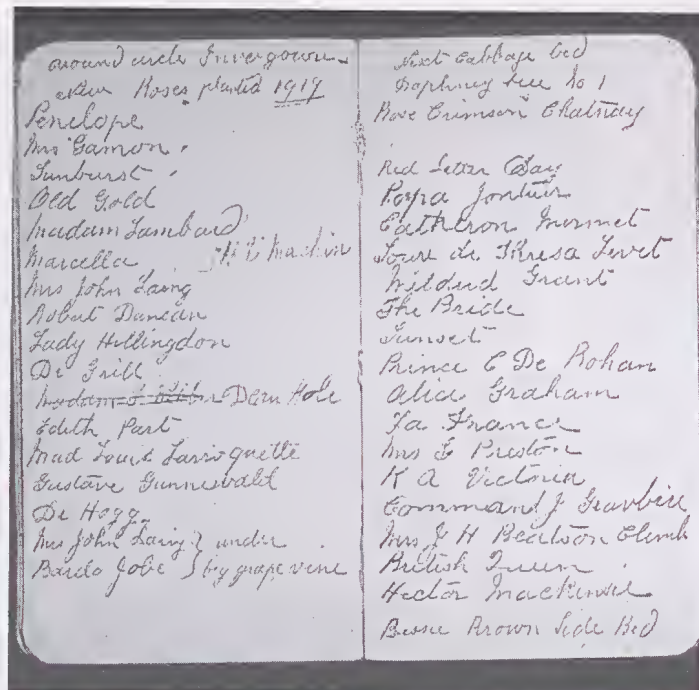 around circle Invergowrie
after Roses planted 1917
Penelope
Mrs Gamon.
Sunburst.
Old Gold
Madam Lambard
Marcella
Mrs John Laing
Robert Duncan
Lady Hillingdon
Dr Grill
Dean Hole
Edith Part
Mad Louis
Gustave
Dr Hogg
Mrs John Laing } under
Bardo Jobe } big grape vine
Next Cabbage bed
Daphney tree No 1
Rose Crimson Chatnay
Red Letter Day
Papa Jontier
Catheron Mermet
Souve de Theresa Levet
Mildred Grant
The Bride
Sunset
Prince C De Rohan
Alice Graham
La France
Mrs Preston
K A Victoria
Command J
Mrs J H Beatson Climb
British Queen
Hector Mackensie
Bessie Brown Side Bed